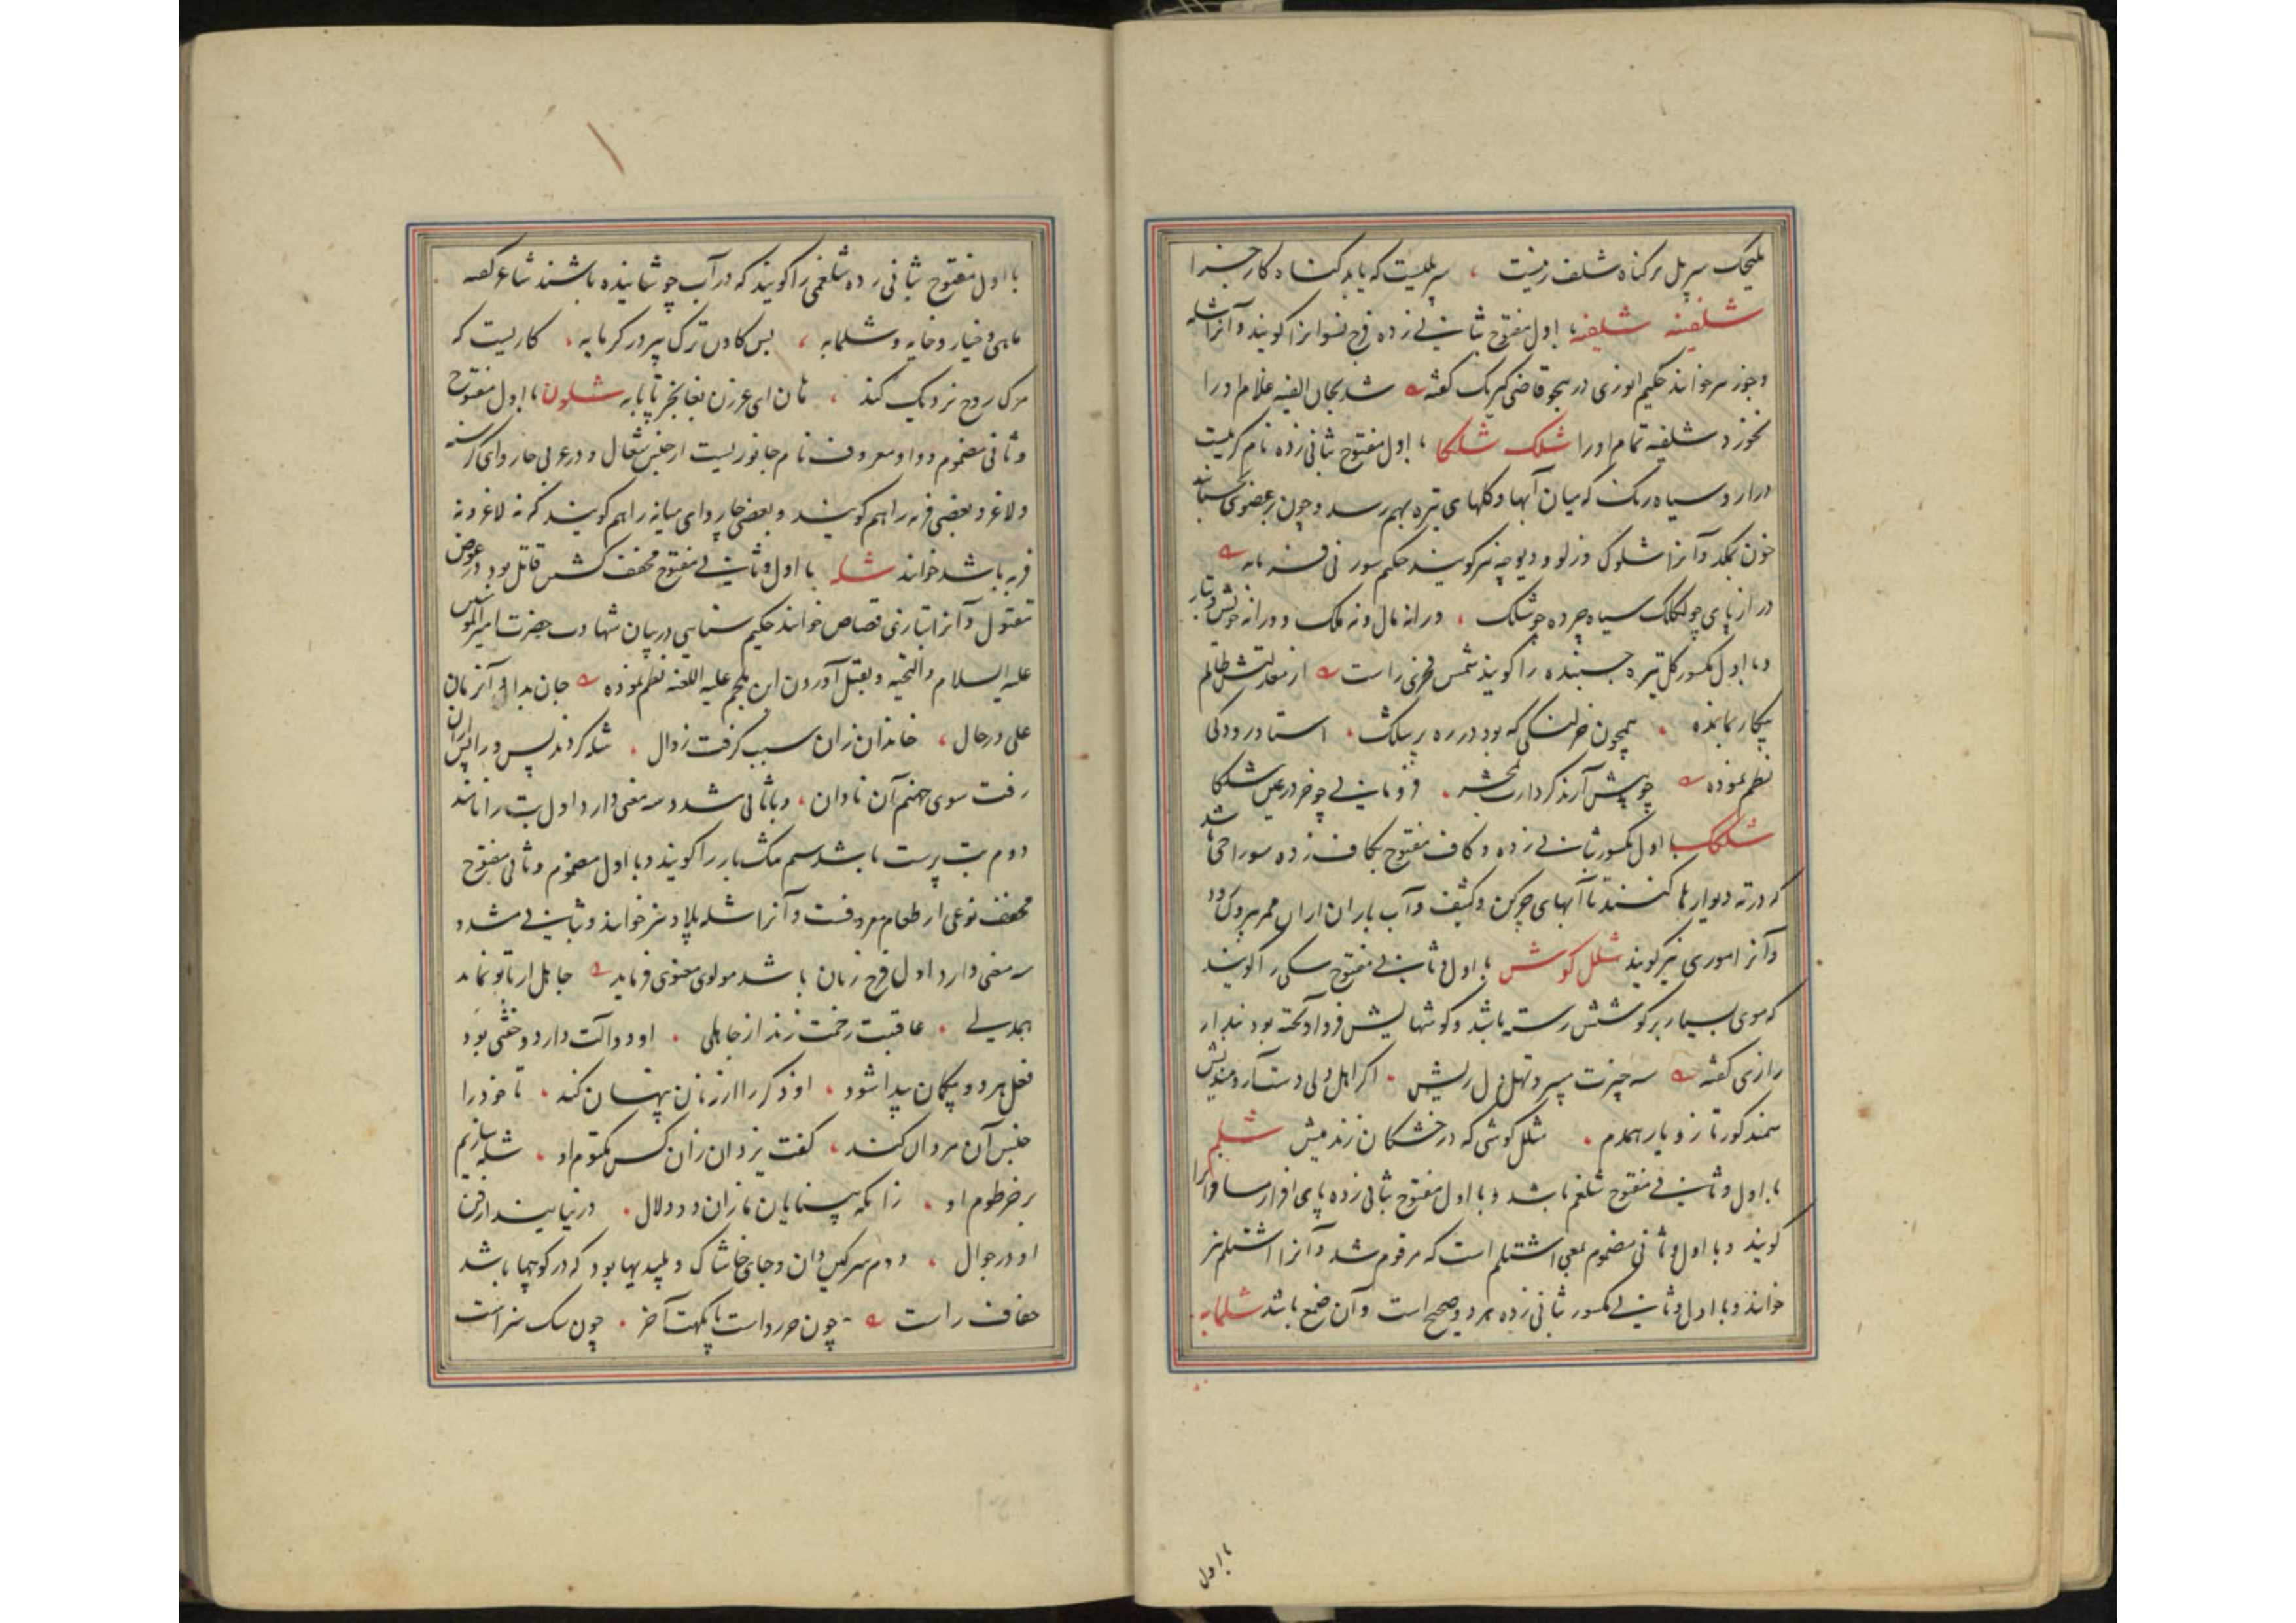 بلیجک سر پل بر کناه شلف زنیست ، سر پلیست که باید کناه کار جزا
شلفینه شلیفه با اول مفتوح بثانی زده فرج نسوانرا کویند و آنرا شله
و جوز سر خوانند حکیم انوری در هجو قاضی کیرنک کفته شد بجان الفیه غلام او را
بخورد شلفیه تمام او را شلک شلکا با اول مفتوح ثانی زده نام کرمیست
دراز و سیاه رنک که میان آبها و کلهای تیره بهم رسد و چون بر عضوی بچسباند
خون بمکد و آنرا شلوک و زلو و دیوچه نیز کویند حکیم سوزنی فرماید
دراز پای چو لکلک سیاه چرده چو شلک ، ورا نه مال و نه ملک و ورا نه خویش و تبار
و با اول مکسور کل تیره چسبنده را کویند شمس فخری راست از معدلتش ظالم
بیکار بمانده . همچون خر لنکی که بود در ره پر شلک . استاد رودکی
نظم نموده چو پیش آرند کردارت بمحشر . فرومانی چو خر در عین شلکا
شلکک با اول مکسور ثانی زده و کاف مفتوح بکاف زده سوراخی باشد
که در ته دیوارها کنند تا آبهای چرکن و کثیف و آب باران از ان ممر بیرون رود
و آنرا موری نیز کویند شلل کوش با اول و ثانی مفتوح سکی را کویند
که موی بسیار بر کوشش رسته باشد و کوشهایش فرو آویخته بود بندار
رازی کفته سه چیزت میبرد تهل دل ریش . اکر اهل دلی دستار و مندیش
سمند کور تاز و یار همدم . شلل کوشی که در خشکان زند میش شلم
با اول و ثانی مفتوح شلغم باشد و با اول مفتوح بثانی زده پای افزار مسافرانرا
کویند و با اول و ثانی مضموم بمعنی اشتلم است که مرقوم شد و آنرا اشتلم نیز
خوانند و با اول و ثانی مکسور ثانی زده هر دو صحیح است و آن صمغ باشد شلمابه
با اول
با اول مفتوح بثانی زده شلغمی را کویند که در آب جوشانیده باشند شاعر کفته
ماهی و خیار و خایه و شلمابه ، پس کادن ترک پیر در کرمابه . کاریست که
مرک روح نزدیک کند ، هان ای عرزن نعابخر تا تابه شلون با اول مفتوح
و ثانی مضموم و واو معروف نام جانوریست از جنس شغال و در عربی چاروای کرسنه
و لاغر و بعضی فربه را هم کویند و بعضی چاروای میانه را هم کویند که نه لاغر و نه
فربه باشد خوانند شله با اول و ثانی مفتوح مخفف کشتن قاتل بود در عوض
مقتول و آنرا بتازی قصاص خوانند حکیم سنایی در بیان شهادت حضرت امیر المومنین
علیه السلام والتحیه و بقتل آوردن ابن ملجم علیه اللعنه نظم نموده جان بداد آنزمان
علی در حال ، خاندان زان سبب کرفت زوال . شله کردند پس ورا پس از ان
رفت سوی جهنم آن نادان ، و با ثانی مشدد سه معنی دارد اول بت را نامند
دوم بت پرست باشد سیم مک بار را کویند و با اول مضموم و ثانی مفتوح
مخفف نوعی از طعام معروفست و آنرا شله پلاو نیز خوانند و بثانی مشدد
سه معنی دارد اول فرج زنان باشد مولوی معنوی فرماید جاهل ار با تو نماید
همدلی . عاقبت زخمت زند از جاهلی . او دو آلت دارد و خنثی بود
فعل هر دو بیکمان پیدا شود . او ذکر را از زنان پنهان کند . تا خود را
جنس آن مردان کند ، کفت یزدان زان کس مکتوم او . شله سازیم
بر خرطوم او . زانکه بینایان ما زان ذو دلال . در نیابند از فن
او در جوال . دوم سرکین دان و جای خاشاک و پلیدیها بود که در کوچها باشد
خفاف راست چون خرد داست پا یکمت آخر . چون سک سزاست